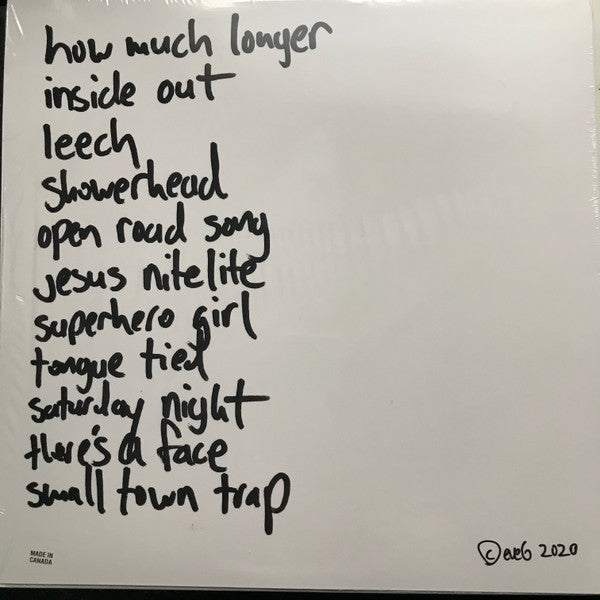 how much longer
inside out
leech
showerhead
open road song
jesus nitelite
superhero girl
tongue tied
saturday night
there's a face
small town trap
MADE IN
CANADA
© eve6 2020